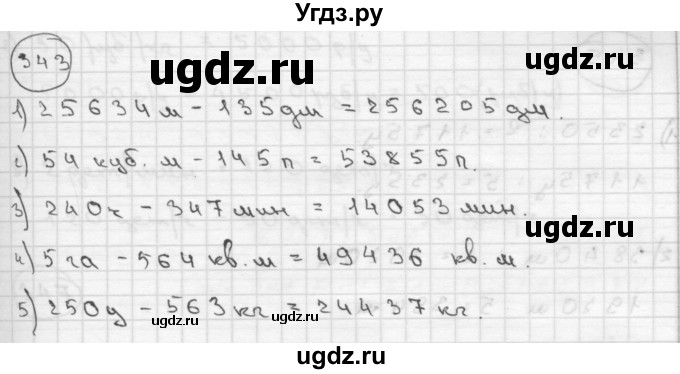 Угдз.ру
343
ugdz.ru
1) 25634 м - 135 дм = 256205 дм.
2) 54 куб. м - 145 л = 53855 л.
3) 240 ч - 347 мин = 14053 мин.
ugdz.ru
4) 5 га - 564 кв. м = 49436 кв. м.
5) 250 ц - 563 кг = 24437 кг.
ugdz.ru
ugdz.ru